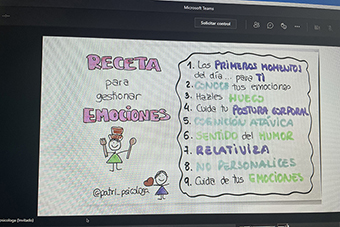 Microsoft Teams
Solicitar control
RECETA
para
gestionar
EMOCIONES
@patri_psicologa
1. Los PRIMEROS MOMENTOS
del día... para TI
2. CONOCE tus emociones
3. Hazles HUECO
4. Cuida tu POSTURA CORPORAL
5. COGNICIÓN ATÁVICA
6. SENTIDO del HUMOR
7. RELATIVIZA
8. NO PERSONALICES
9. Cuida de tus EMOCIONES
psicologa (Invitado)